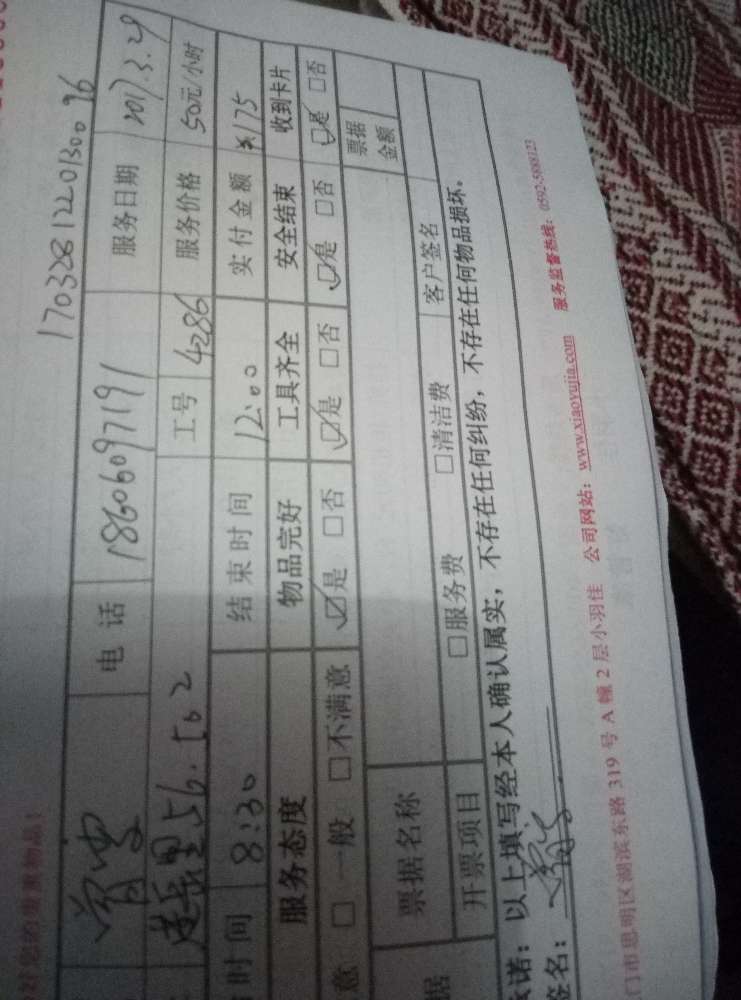 好您的贵重物品!
17032812201300 96
曾雯 电话 18606097191 服务日期 2017.3.29
莲岳里56.502 工号 4286 服务价格 50元/小时
时间 8:30 结束时间 12:00 实付金额 ¥175
服务态度 物品完好 工具齐全 安全结束 收到卡片
意 □一般 □不满意 ☑是 □否 ☑是 □否 ☑是 □否 ☑是 □否
据 票据名称 票据金额
开票项目 □服务费 □清洁费 客户签名
承诺:以上填写经本人确认属实,不存在任何纠纷,不存在任何物品损坏。
签名:
门市思明区湖滨东路 319 号 A 幢 2 层小羽佳 公司网站:www.xiaoyujia.com 服务监督热线:0592-5888123